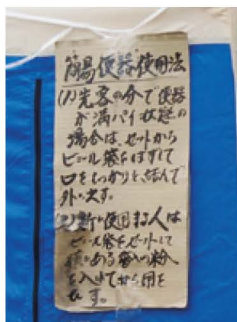 簡易便器使用法
(1)先客の分で便器
が満パイ状態の
場合は、セットから
ビニール袋をはずして
口をしっかりと結んで
外に出す。
(2)新に使用する人は
ビニール袋をセットして
ある の粉
を入れてから用を
足す。